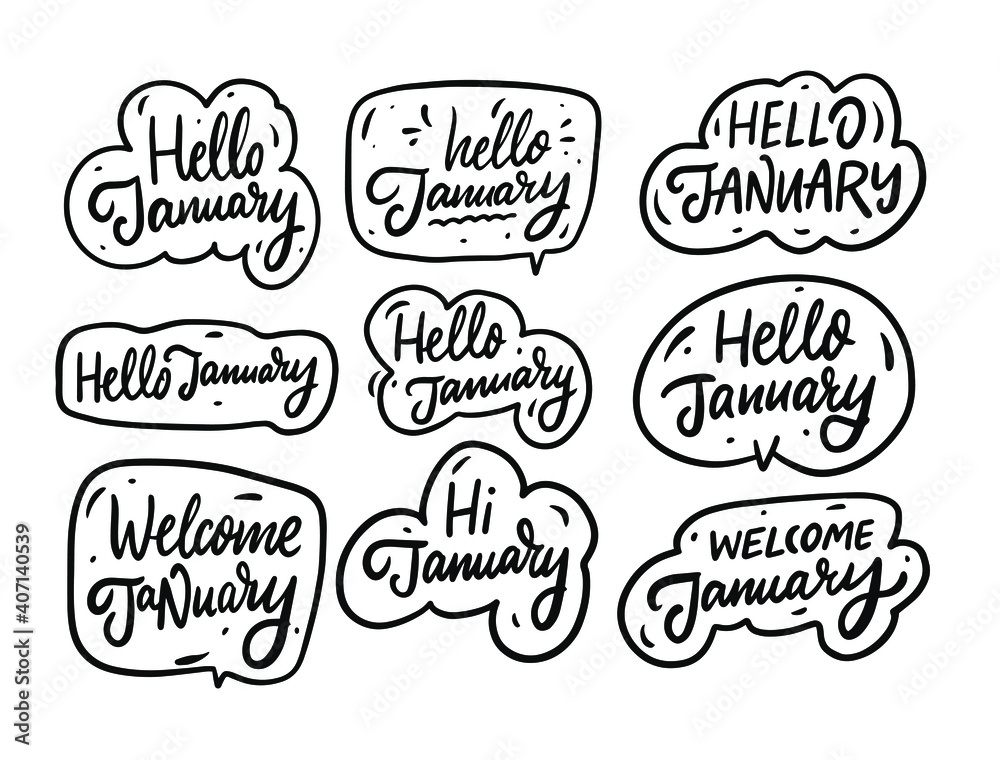 Hello
January
hello
January
HELLO
JANUARY
Hello January
Hello
January
Hello
January
Welcome
JaNuary
Hi
January
WELCOME
January
Adobe Stock | #407140539